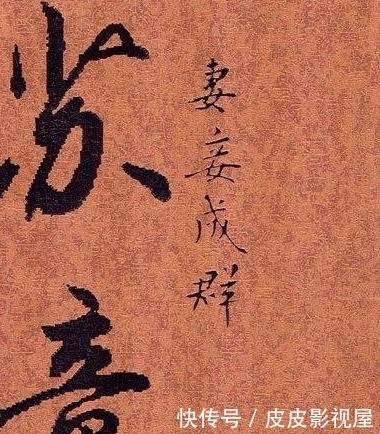 苏童
妻妾成群
快传号 / 皮皮影视屋